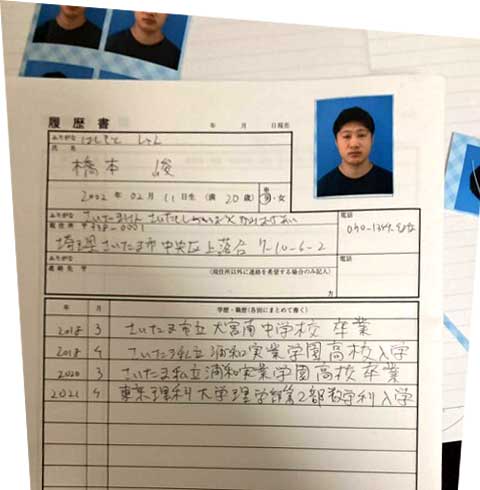 履歴書 年 月 日現在
ふりがな はしもと しゅん
氏名 橋本 駿
2002 年 02 月 11 日生 (満 20 歳) 男・女
ふりがな さいたまけん さいたましちゅうおうく かみおちあい 電話
現住所 〒338-0001
埼玉県さいたま市中央区上落合 7-10-6-2
ふりがな 電話
連絡先 〒 (現住所以外に連絡を希望する場合のみ記入)
方
年 月 学歴・職歴(各別にまとめて書く)
2018 3 さいたま市立大宮南中学校 卒業
2018 4 さいたま私立浦和実業学園高校入学
2020 3 さいたま私立浦和実業学園高校卒業
2021 4 東京理科大学理学部第2部数学科入学